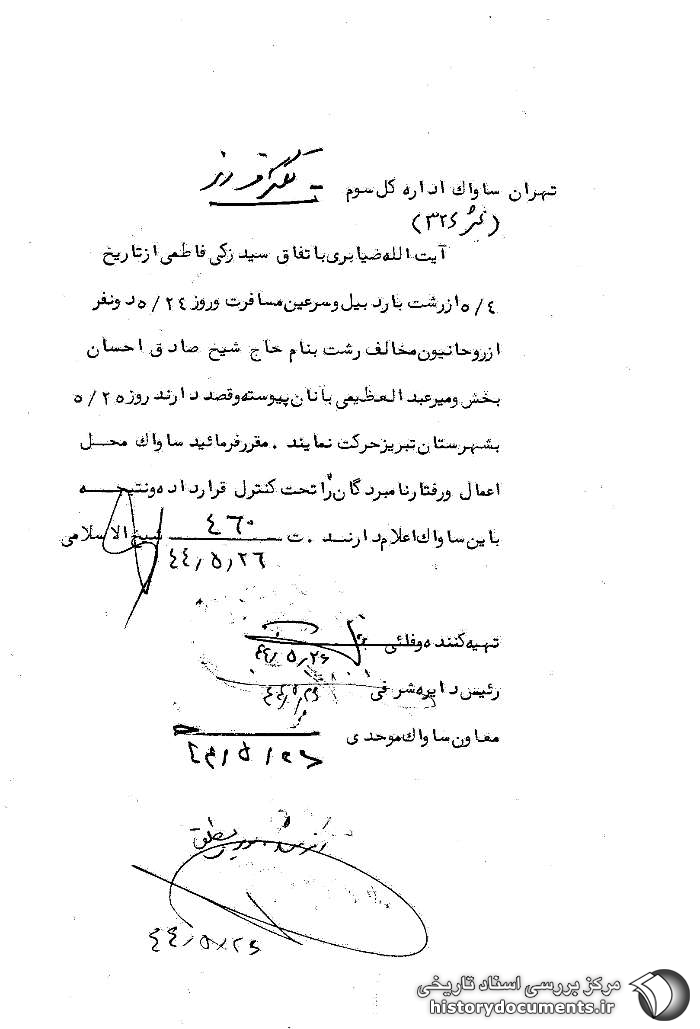 تهران ساواك اداره كل سوم - تلگراف رمز
(نمره ۳۲۶)
آیت الله ضیابری با تفاق سید زکی فاطمی از تاریخ
۵/٤ از رشت بارد بیل و سرعین مسافرت و روز ۵/۲٤ د و نفر
از روحانیون مخالف رشت بنام حاج شیخ صادق احسان
بخش و میر عبد العظیمی بآنان پیوسته و قصد دارند روز ۵/۲۵
بشهرستان تبریز حرکت نمایند . مقرر فرمائید ساواك محل
اعمال ورفتار نامبردگان را تحت کنترل قرار داده و نتیجه
باین ساواك اعلام دارند . ت ٤٦٠ شیخ الاسلامی
٤٤/۵/۲٦
تهیه کننده وفائی
٤٤/۵/۲۶
رئیس دایره شرفی
٤٤/۵/۲۶
معاون ساواك موحدی
٤٤/۵/۲۶
مرکز بررسی اسناد تاریخی
historydocuments.ir